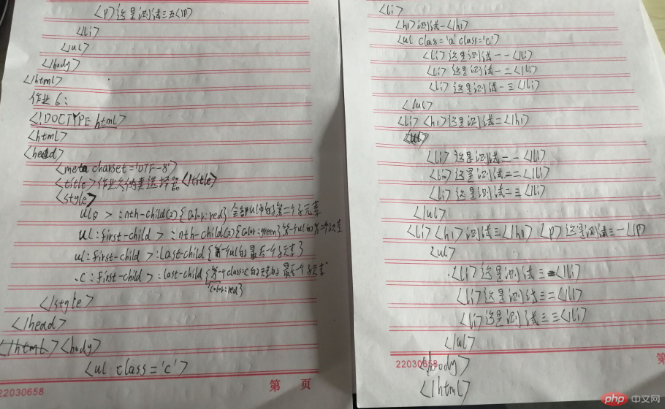 <p>这是测试三五</p>
</li>
</ul>
</body>
</html>
作业6:
<!DOCTYPE html>
<html>
<head>
<meta charset='UTF-8'>
<title>作业六伪类选择器</title>
<style>
ul > :nth-child(2){color:red}
ul:first-child > :nth-child(2){color:green}
ul:first-child >:last-child{第一个ul的最后一个子元素}
.c:first-child>:last-child{
color:red}
</style>
</head>
</html><body>
<ul class='c'>
22030658
第 页
<li>
<h1>测试一</h1>
<ul class='a' class='c'>
<li>这是测试一一</li>
<li>这是测试一二</li>
<li>这是测试一三</li>
</ul>
<li><h1>这是测试二</h1>
<ul>
<li>这是测试二一</li>
<li>这是测试二二</li>
<li>这是测试二三</li>
</ul>
<li><h1>这是测试三</h1><p>这是测试三一</p>
<ul>
<li>这是测试三一</li>
<li>这是测试三二</li>
<li>这是测试三三</li>
</ul>
<body>
</html>
22030658
第 页
php 中文网